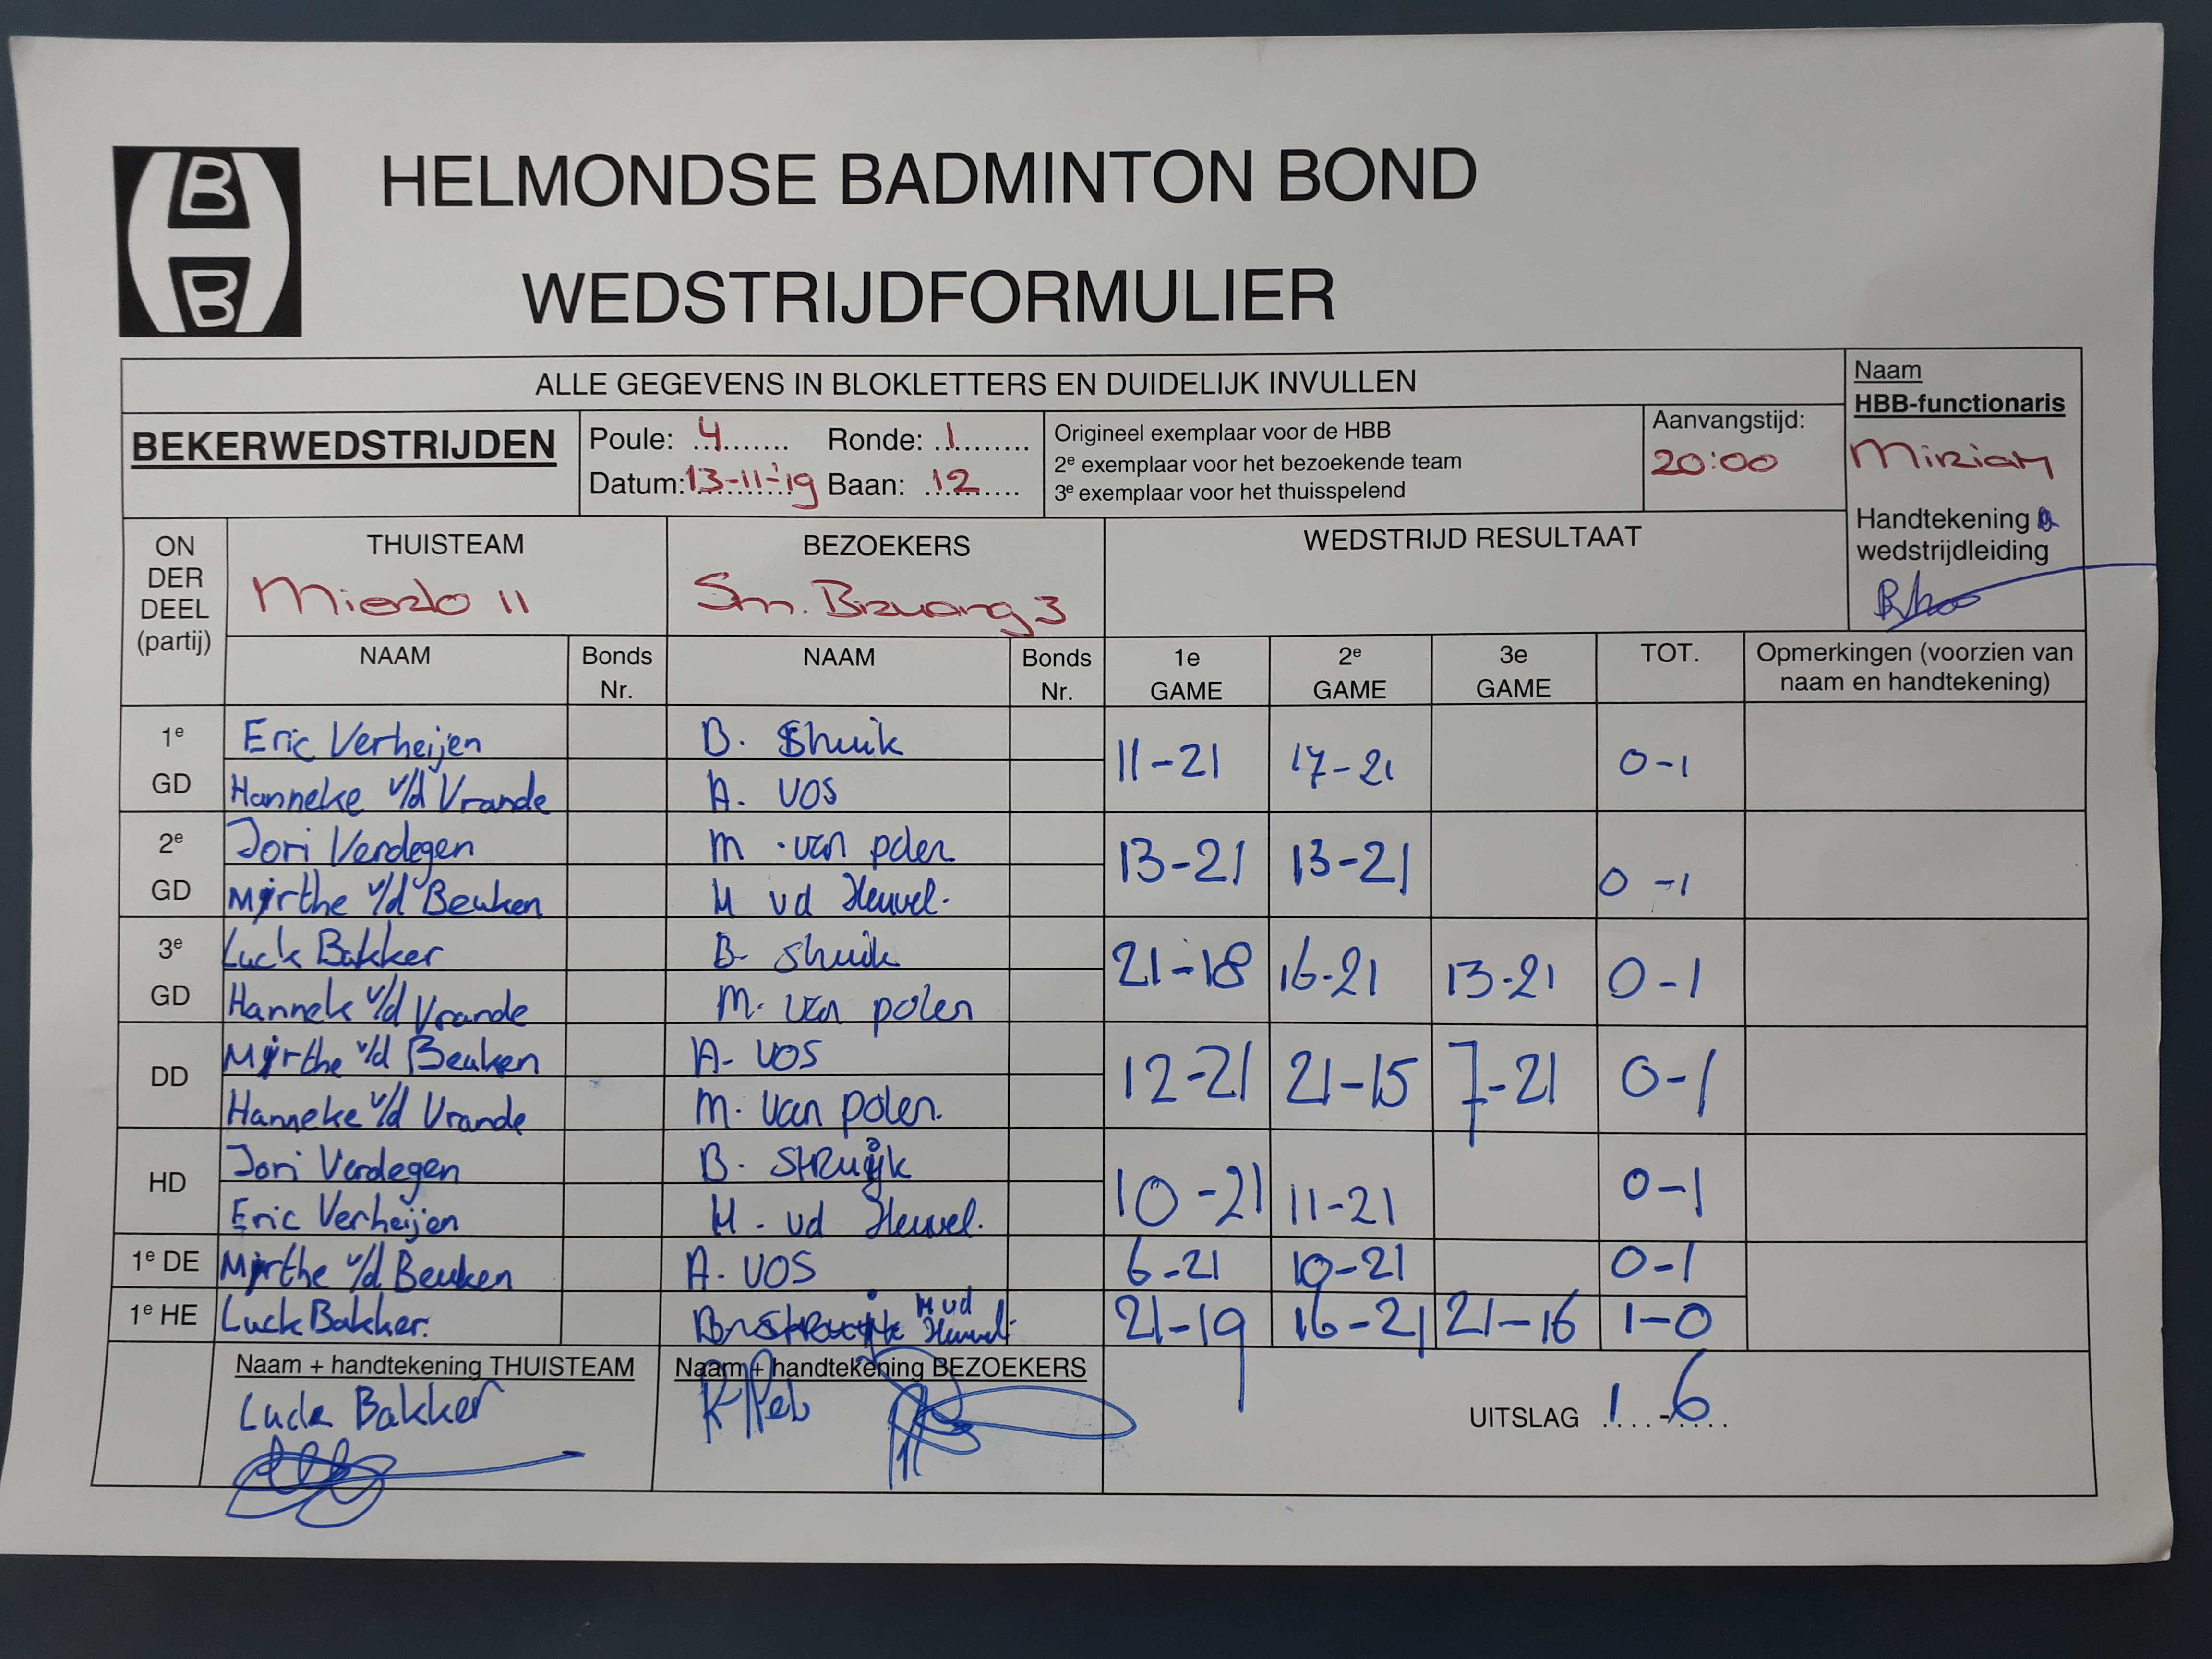 HELMONDSE BADMINTON BOND
WEDSTRIJDFORMULIER
ALLE GEGEVENS IN BLOKLETTERS EN DUIDELIJK INVULLEN
Naam
HBB-functionaris
Miriam
BEKERWEDSTRIJDEN
Poule: 4 Ronde: 1
Datum: 13-11-'19 Baan: 12
Origineel exemplaar voor de HBB
2e exemplaar voor het bezoekende team
3e exemplaar voor het thuisspelend
Aanvangstijd:
20:00
Handtekening
wedstrijdleiding
ON
DER
DEEL
(partij)
THUISTEAM
Mierlo 11
BEZOEKERS
Sm. 3
WEDSTRIJD RESULTAAT
NAAM Bonds Nr. NAAM Bonds Nr. 1e GAME 2e GAME 3e GAME TOT. Opmerkingen (voorzien van naam en handtekening)
1e Eric Verheijen B. 11-21 17-21 0-1
GD Hanneke v/d Vrande A. VOS
2e Jori Verdegen M. van polen 13-21 13-21 0-1
GD Myrthe v/d Beuken M vd Heuvel.
3e Luck Bakker B. 21-18 16-21 13-21 0-1
GD Hannek v/d Vrande M. van polen
DD Myrthe v/d Beuken A- VOS 12-21 21-15 7-21 0-1
Hanneke v/d Vrande M. van polen.
HD Jori Verdegen B. STRUijk 10-21 11-21 0-1
Eric Verheijen M. vd Heuvel.
1e DE Myrthe v/d Beuken A. VOS 6-21 10-21 0-1
1e HE Luck Bakker. M vd Heuvel. 21-19 16-21 21-16 1-0
Naam + handtekening THUISTEAM Naam + handtekening BEZOEKERS
Luck Bakker
UITSLAG 1-6